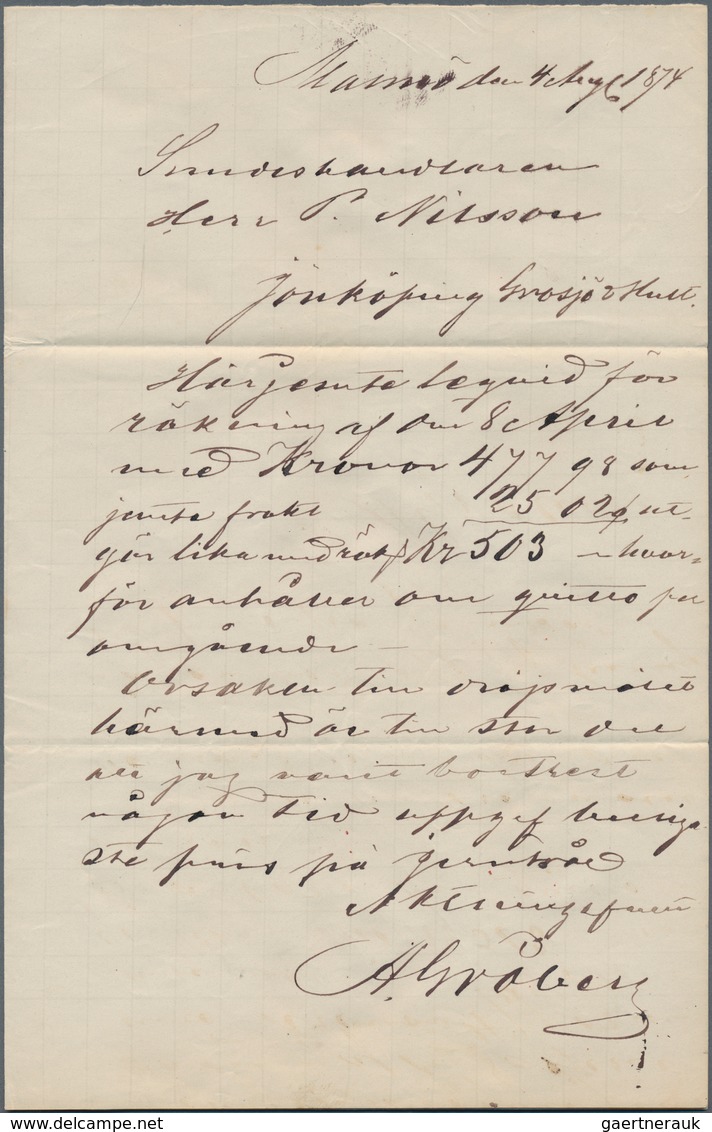 Malmö den 4 Aug 1874
Smideshandlaren
Herr P. Nilsson
Jönköping
Härjemte leqvid för
räkning af den 8 April
med Kronor 477 98 som
jemte frakt 25 02 ut-
gör lika med räk Kr 503 hvar-
för anhåller om qvitto per
omgående —
Orsaken till dröjsmålet
härmed är till stor del
att jag varit bortrest
någon tid uppgif billiga-
ste pris på Jerntråd
Aktningsfullt
A. Gröberg
gaertnerauk